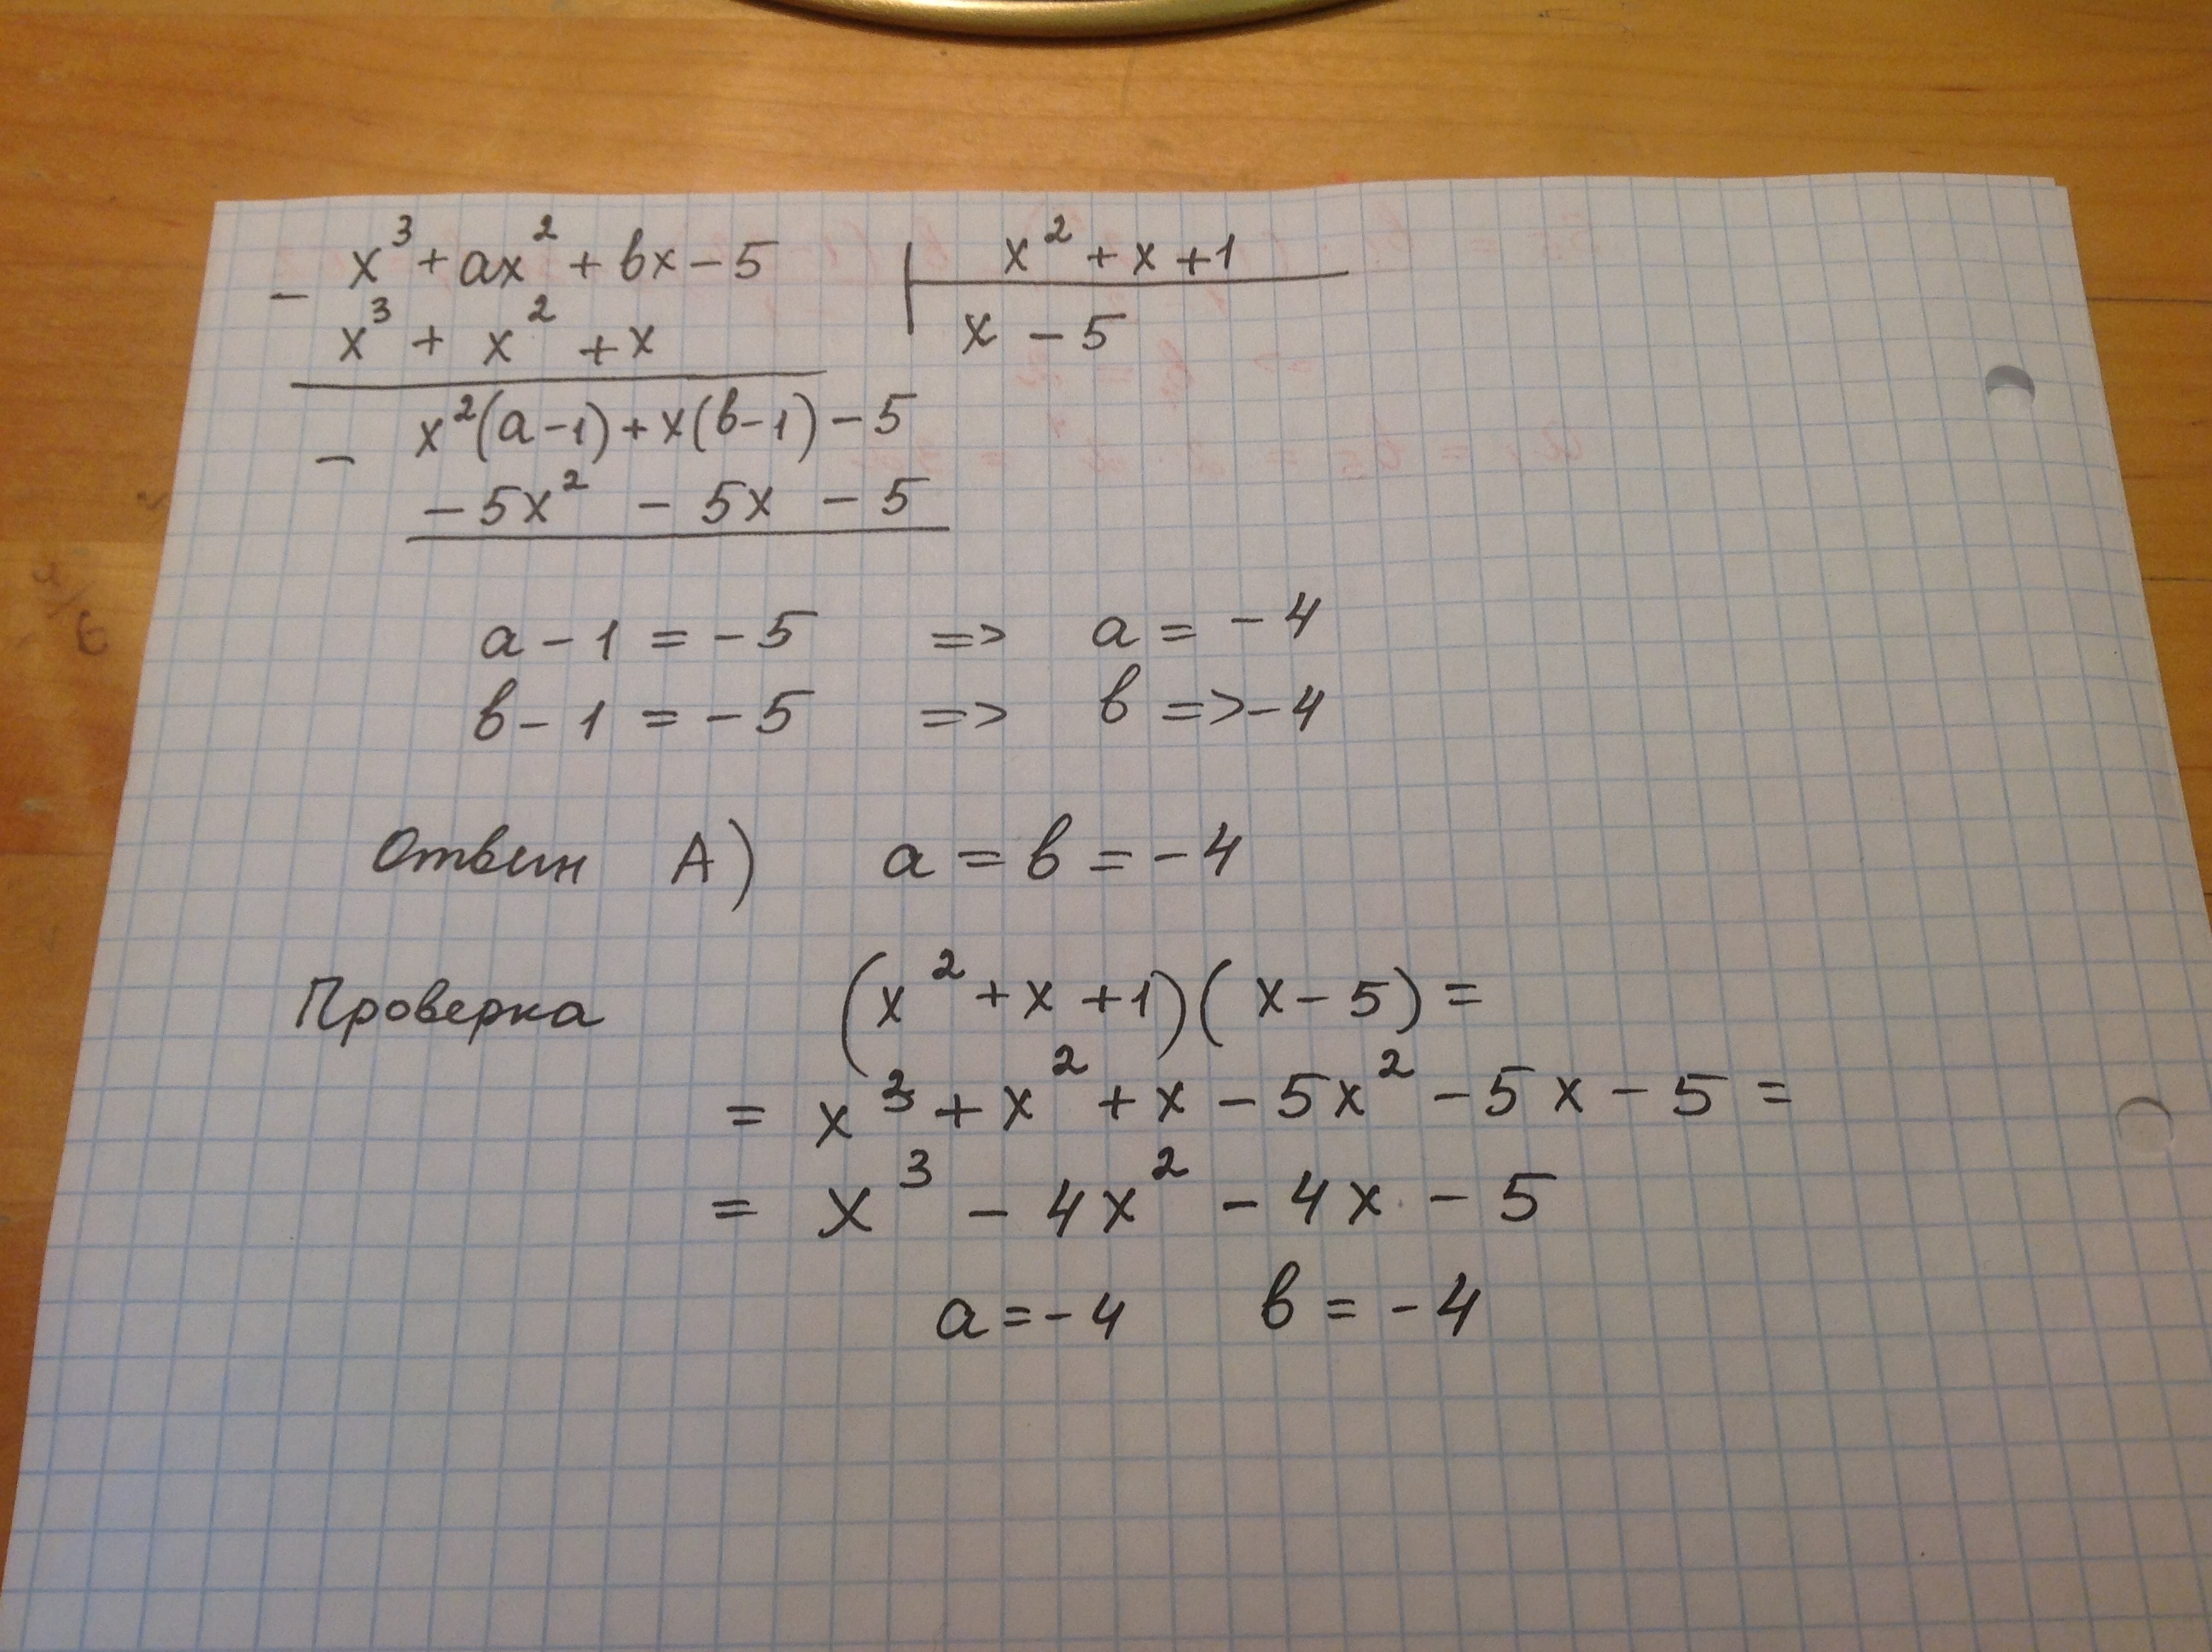 x³ + ax² + bx - 5 | x² + x + 1
- x³ + x² + x | x - 5
x²(a-1) + x(b-1) - 5
- -5x² - 5x - 5
a - 1 = -5 => a = -4
b - 1 = -5 => b => -4
Ответ A) a = b = -4
Проверка (x² + x + 1)(x - 5) =
= x³ + x² + x - 5x² - 5x - 5 =
= x³ - 4x² - 4x - 5
a = -4 b = -4